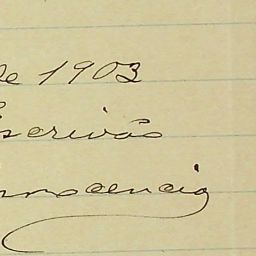 de 1903
Escrivão
nnocencio